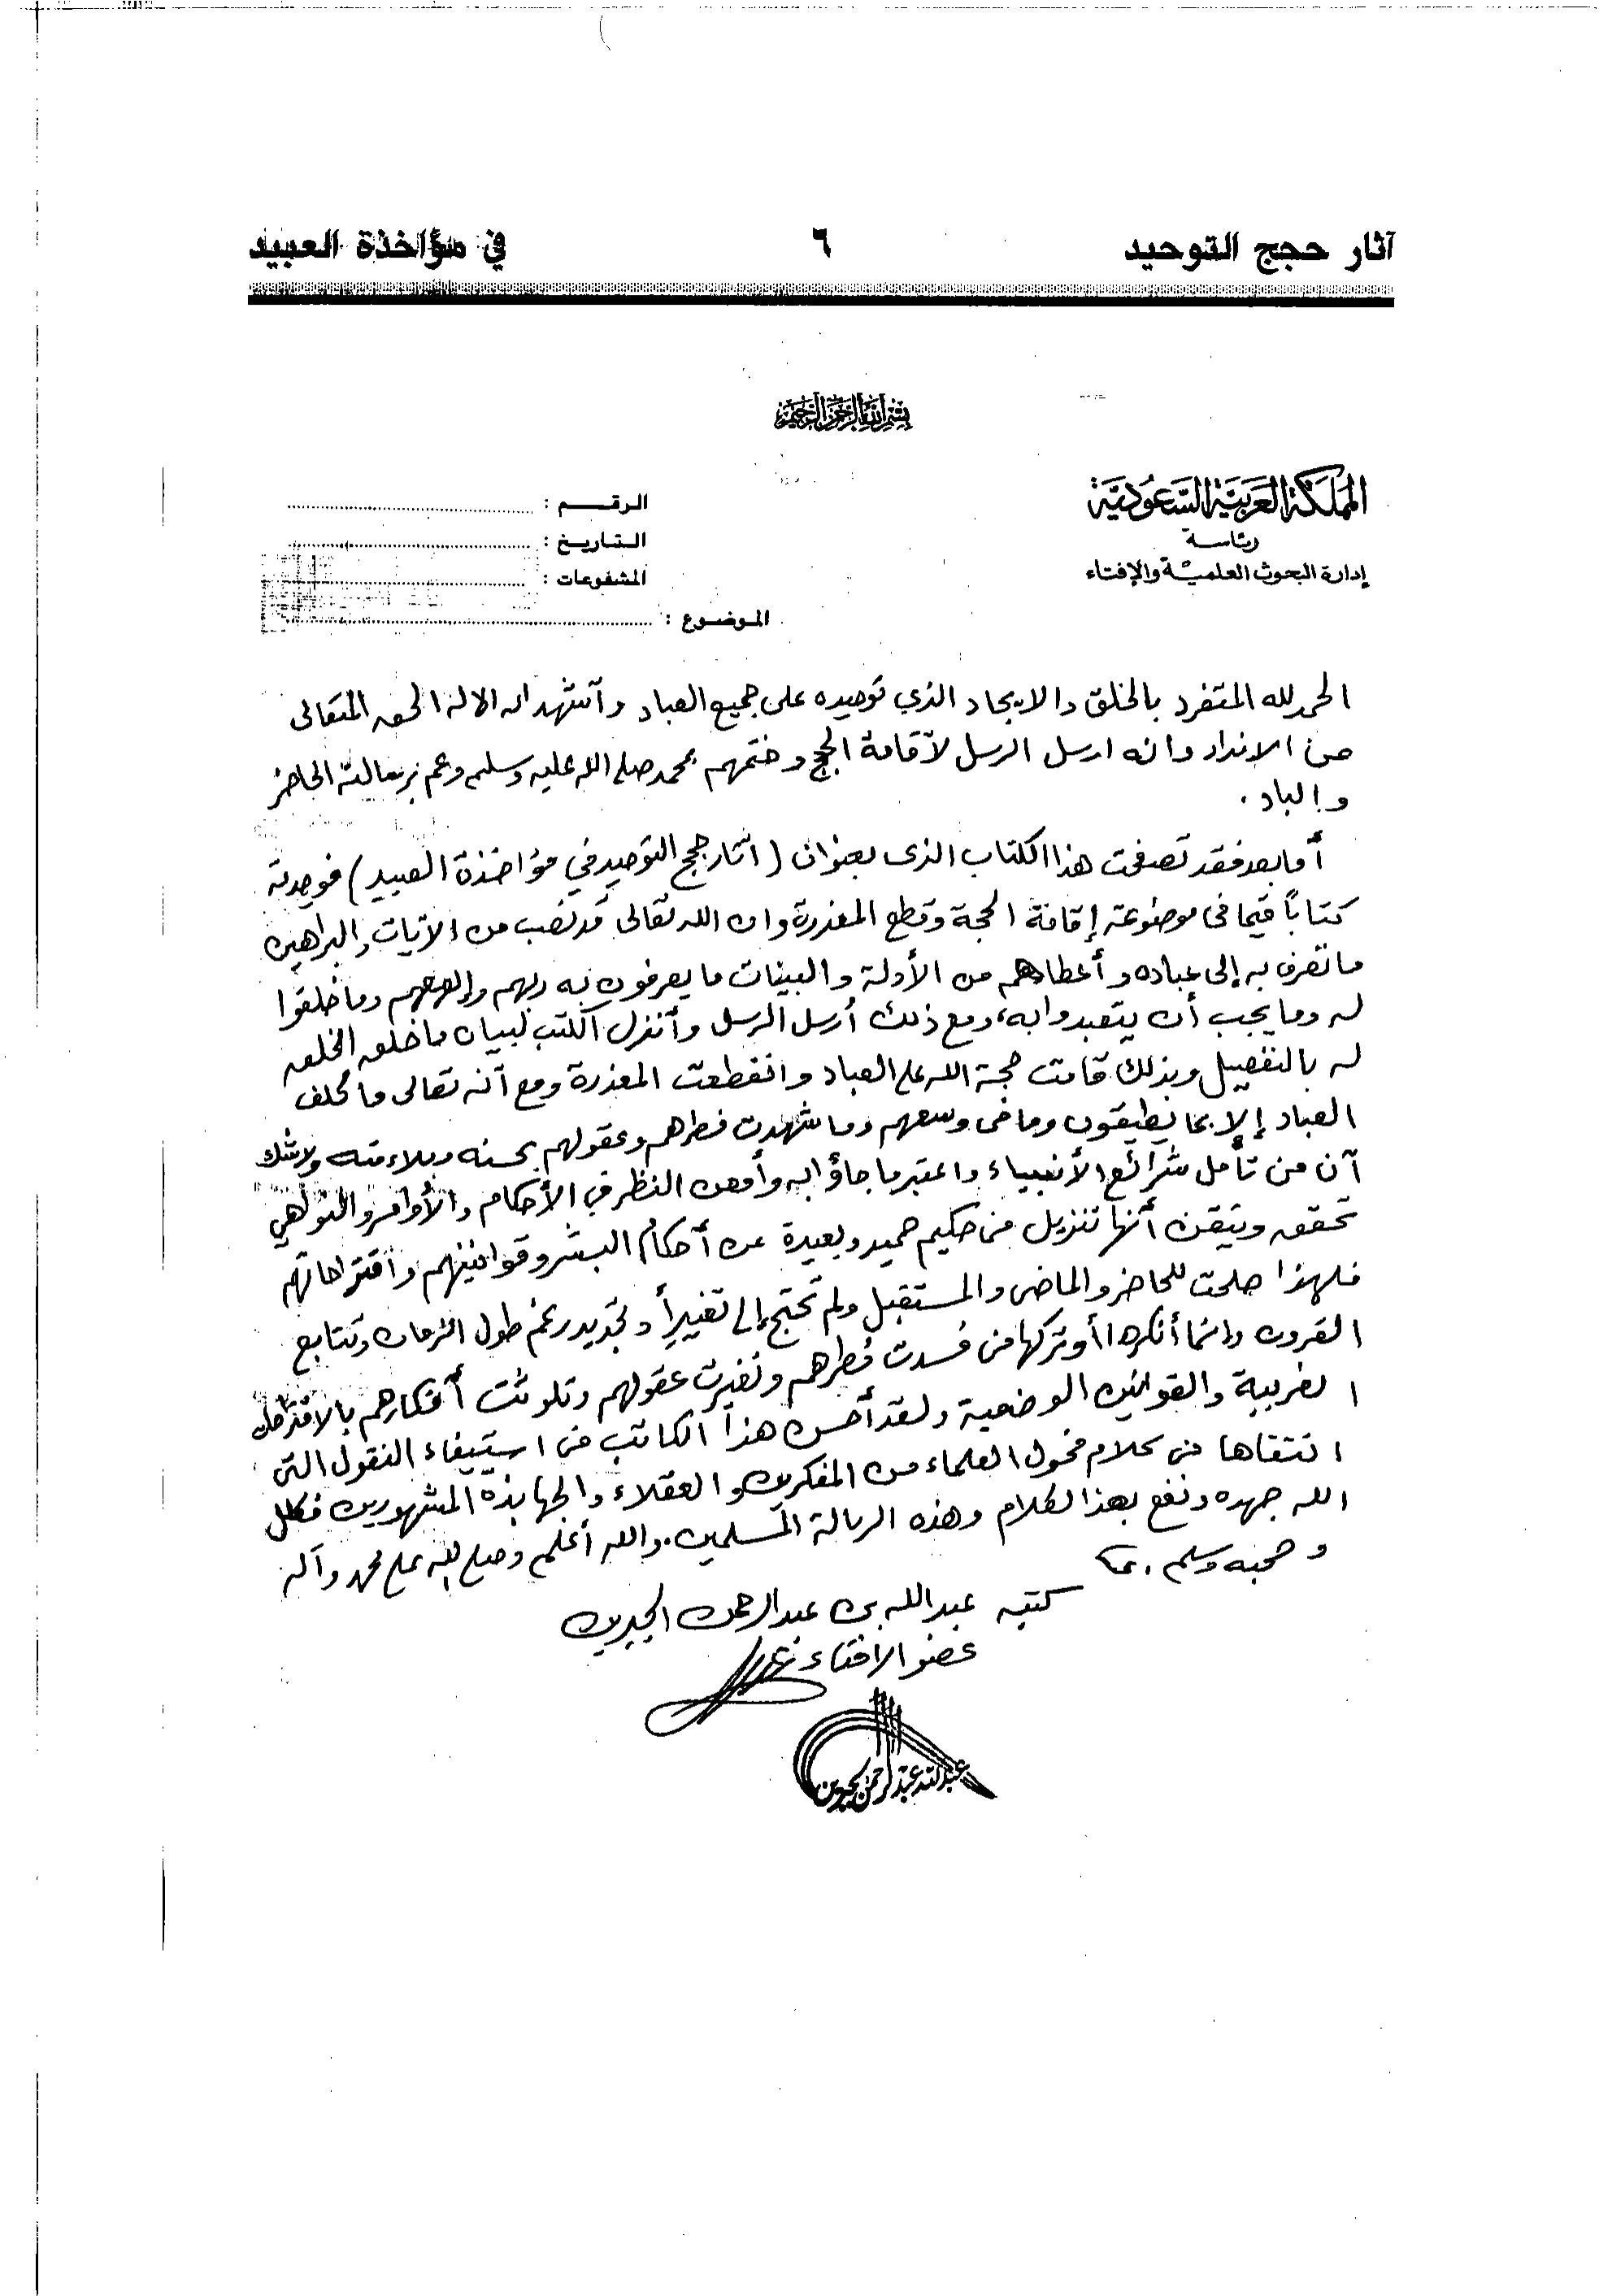 آثار حجج التوحيد ٦ في مؤاخذة العبيد
بسم الله الرحمن الرحيم
المملكة العربية السعودية
رئاسة
إدارة البحوث العلمية والإفتاء
الرقم :
التاريخ :
المشفوعات :
الموضوع :
الحمد لله المتفرد بالخلق والايجاد الذي توحيده على جميع العباد وأشهد انه الاله الحق المتعالى
عن الانداد وانه ارسل الرسل لأقامة الحجج وختمهم بمحمد صلى الله عليه وسلم وعم برسالته الحاضر
والباد .
أما بعد فقد تصفحت هذا الكتاب الذى بعنوان ( اثار حجج التوحيد في مؤاخذة العبيد ) فوجدته
كتاباً قيما فى موضوعه إقامة الحجة وقطع المعذرة وان الله تعالى قد نصب من الآيات والبراهين
ما تعرف به إلى عباده وأعطاهم من الأدلة والبينات ما يعرفون به ربهم وإلههم وما خلقوا
له وما يجب أن يتعبدوا به، ومع ذلك أرسل الرسل وأنزل الكتب لبيان ما خلق الخلق
له بالتفصيل وبذلك قامت حجة الله على العباد وانقطعت المعذرة ومع أنه تعالى ما كلف
العباد إلا بما يطيقون وما فى وسعهم وما شهدت فطرهم وعقولهم بحسنه وملاءمته ولا شك
أن من تأمل شرائع الأنبياء واعتبر ما جاؤا به وأمعن النظر في الأحكام والأوامر والنواهي
تحقق وتيقن أنها تنزيل من حكيم حميد وبعيدة عن أحكام البشر وقوانينهم واقتراحاتهم
فلهذا صلحت للحاضر والماضى والمستقبل ولم تحتج إلى تغييراً وتجديد رغم طول الزمان وتتابع
القرون وانما أنكرها أو تركها من فسدت فطرهم وتغيرت عقولهم وتلوثت أفكارهم بالاقتراحات
الغربية والقوانين الوضعية ولقد أحسن هذا الكاتب فى استيفاء النقول التى
انتقاها من كلام فحول العلماء من المفكرين والعقلاء والجهابذة المشهورين فكلل
الله جهده ونفع بهذا الكلام وهذه الرسالة المسلمين. والله أعلم وصلى الله على محمد وآله
وصحبه وسلم .
كتبه عبدالله بن عبدالرحمن الجبرين
عضو الافتاء
عبدالله عبدالرحمن الجبرين